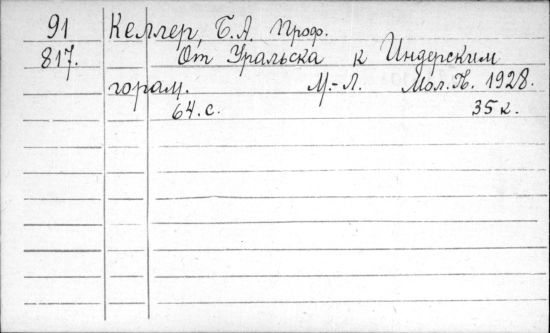 91 Келлер, Б.А. Проф.
817. От Уральска к Индерским
горам. М.-Л. Мол.Гв. 1928.
64.с. 35 к.